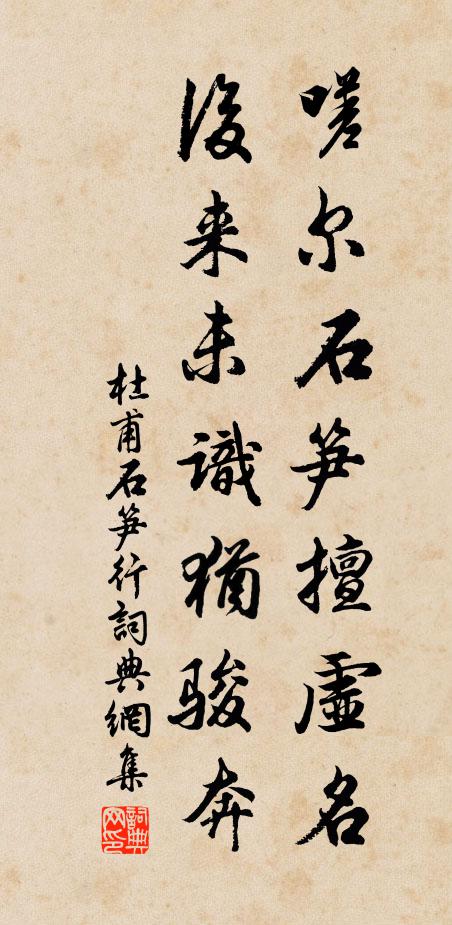 嗟尔石笋擅虚名
後来未識猶駿奔
杜甫石笋行詞典網集
詞典网印